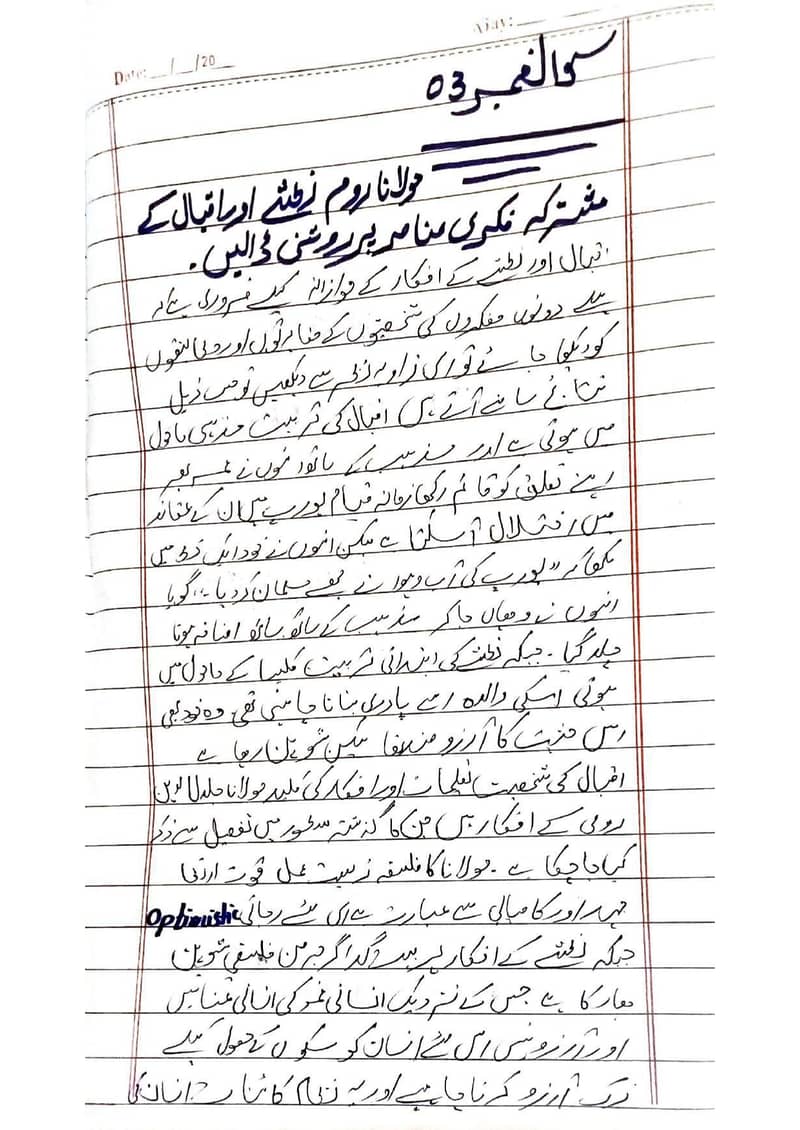 Date: __/__/20__
سوالنمبر 03
مولانا روم نطشے اور اقبال کے
مشترکہ فکری عناصر پر روشنی ڈالیں۔
اقبال اور نطشے کے افکار کے موازانہ کیلے ضروری ہے کہ
پہلے دونوں مفکروں کی شخصیتوں کے اور
کو دیکھا جائے تو اسی زاویہ نظر سے دیکھیں تو حسب ذیل
نتائج سامنے آتے ہیں اقبال کی تربیت مذہبی ماحول
میں ہوئی ہے اور مذہب کے ساتھ انہوں نے عمر بھر
اپنے تعلق کو قائم رکھا زمانہ قیام یورپ میں ان کے عقائد
میں اختلال آ سکتا ہے لیکن انہوں نے خود ایک خط میں
لکھا کہ "یورپ کی آب و ہوا نے مجھے مسلمان کر دیا"۔ گویا
انہوں نے وہاں جا کر مذہب کے ساتھ ساتھ اضافہ ہوتا
چلا گیا۔ جبکہ نطشے کی ابتدائی تربیت کلیسا کے ماحول میں
ہوئی اسکی والدہ اسے پادری بنانا چاہتی تھی وہ خود بھی
اس کا آرزو مند تھا لیکن رہا ہے
اقبال کی شخصیت تعلیمات اور افکار کی کلید مولانا جلال الدین
رومی کے افکار ہیں جن کا گذشتہ سطور میں تفصیل سے ذکر
کیا جا چکا ہے۔ مولانا کا فلسفہ زیست عمل قوت ارتقا
جہد اور کامیابی سے عبارت ہے اسی لئے رجائی Optimistic
جبکہ نطشے کے افکار پر پہلے جرمن فلسفی شوپن
ہار کا ہے جس کے نزدیک انسانی غم کی انسانی تمنائیں
اور آرزوئیں اس لئے انسان کو سکوں کے حصول کیلے
ترک آرزو کرنا چاہیے اور یہ نظام کائنات انسان کی